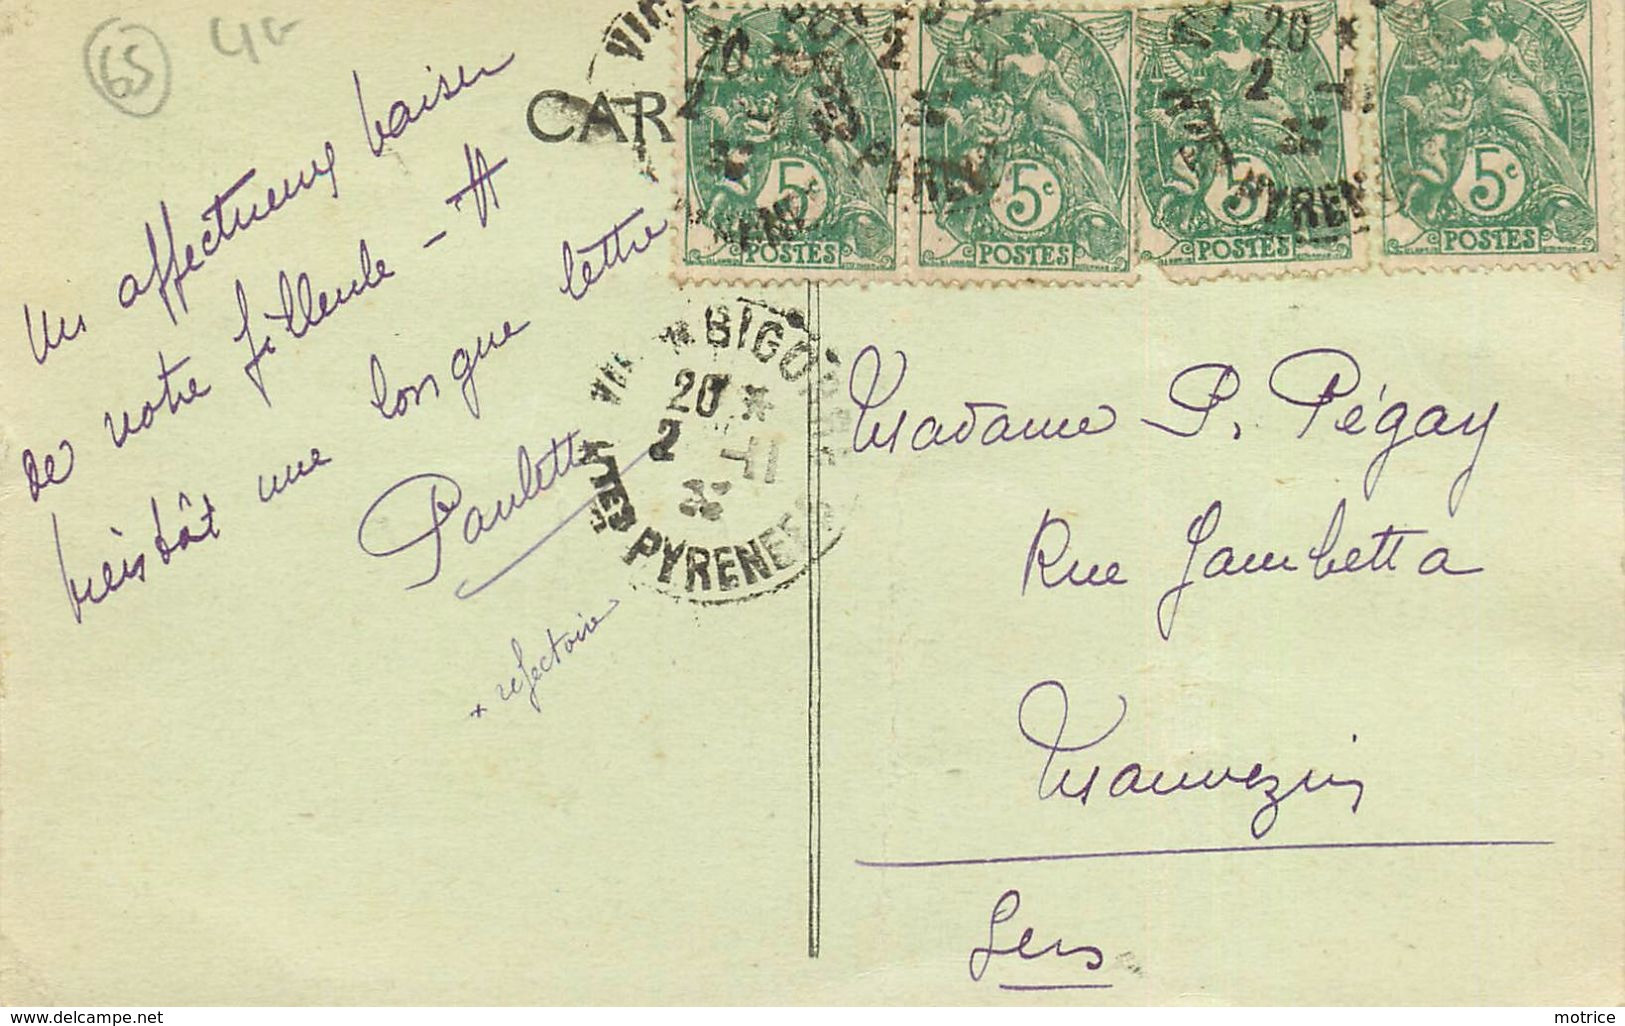 65 4
CAR
Un affectueux baiser
de votre filleule -
bientôt une longue lettre
Paulette
+ refectoire
5
POSTES
5c
POSTES
5
POSTES
5c
POSTES
BIGORRE
20 *
2
PYRENEES
Madame P. Pégay
Rue Gambetta
Mauvezin
Gers
www.delcampe.net
motrice